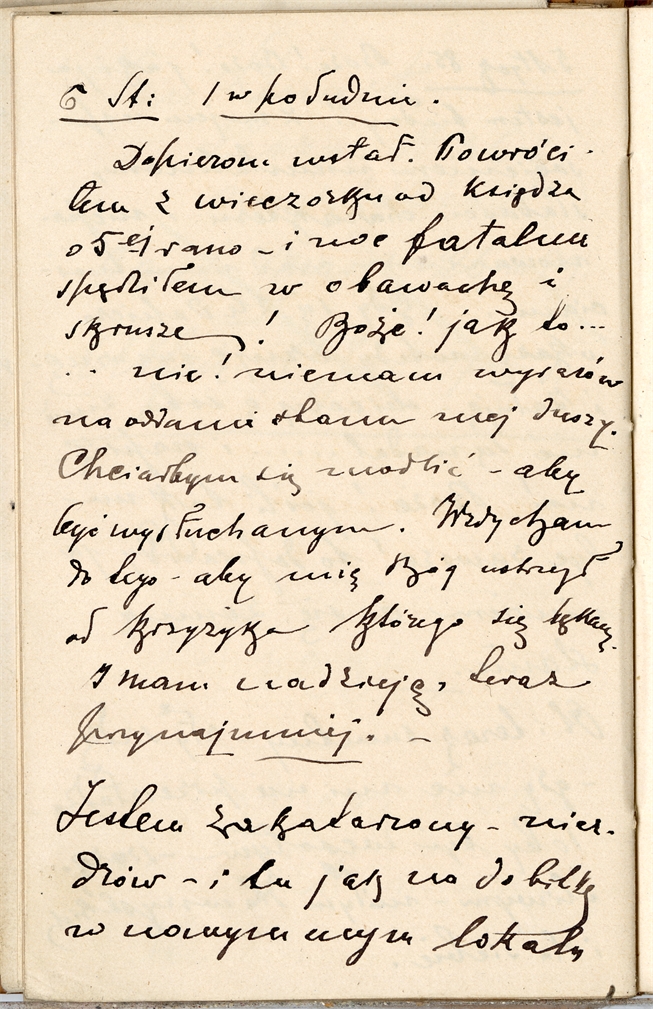 6 St: 1 w południe.
Dopierom wstał. Powróci-
łem z wieczorku od Księdza
o 5ej rano – i noc fatalnie
spędziłem w obawach i
skrusze! Boże! jak to...
.. nic! niemam wyrazów
na oddanie stanu mej duszy.
Chciałbym się modlić – aby
być wysłuchanym. Wzdycham
do tego – aby mię Bóg ustrzegł
od krzyżyka którego się lękam.
I mam nadzieję, teraz
przynajmniej. –
Jestem zakatarzony – niez-
drów – i tu jak na dobitkę
w nowym mym lokalu